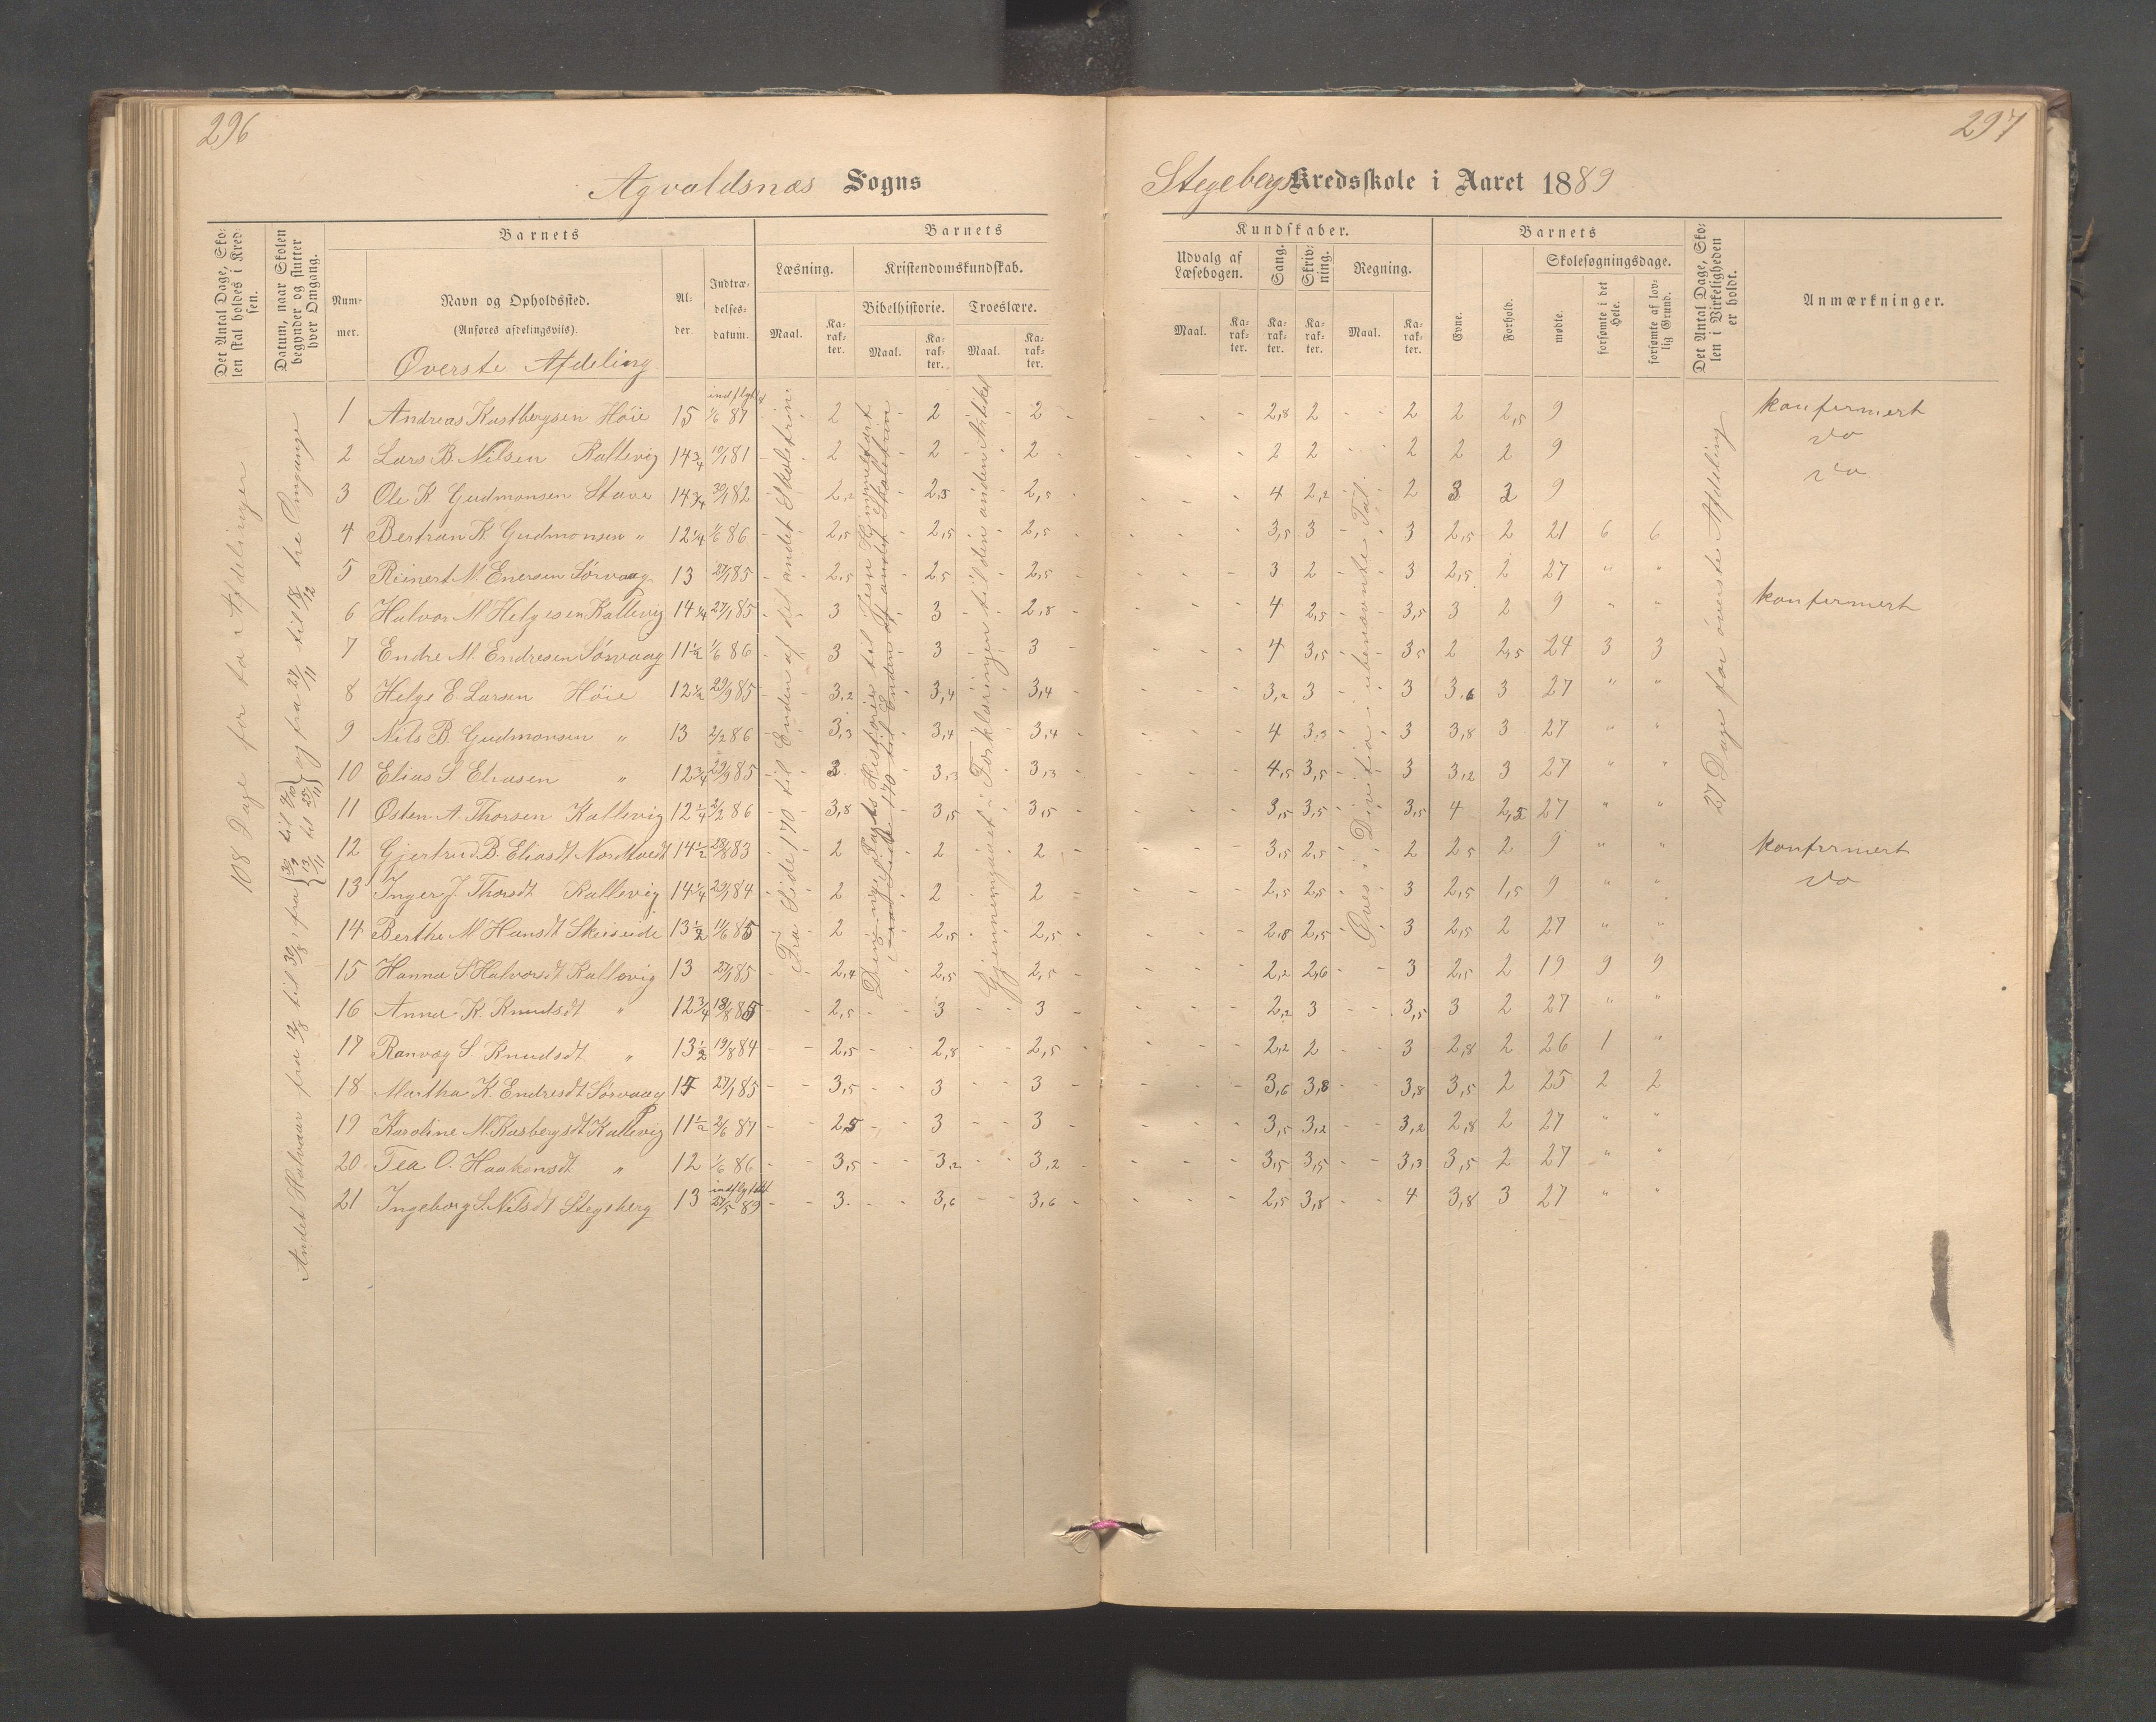 296
297
Agvaldsnæs Sogns
Stegebergs Kredsskole i Aaret 1889
Det Antal Dage, Sko-
len skal holdes i Kred-
sen.
Datum, naar Skolen
begynder og slutter
hver Omgang.
Barnets
Num-
mer.
Navn og Opholdssted.
(Anføres afdelingsviis).
Al-
der.
Indtræ-
delses-
datum.
Barnets
Læsning.
Maal.
Ka-
rak-
ter.
Kristendomskundskab.
Bibelhistorie.
Maal.
Ka-
rak-
ter.
Troeslære.
Maal.
Ka-
rak-
ter.
Kundskaber.
Udvalg af
Læsebogen.
Maal.
Ka-
rak-
ter.
Sang.
Ka-
rak-
ter.
Skriv-
ning.
Ka-
rak-
ter.
Regning.
Maal.
Ka-
rak-
ter.
Barnets
Evne.
Forhold.
Skolesøgningsdage.
mødte.
forsømte i det
Hele.
forsømte af lov-
lig Grund.
Det Antal Dage, Sko-
len i Virkeligheden
er holdt.
Anmærkninger.
Øverste Afdeling
108 Dage for to Afdelinger
Andet Halvaar fra 12/8 til 31/8, fra 30/9 til 9/10 13/11 til 25/11 og fra 27/11 til 18/12 tre Omgange
Fra Side 170 til Enden af det andet Skoletrin
Gjennemgaaet i Forklaringen til den anden Artikel
Øves i Divition i ubenævnte Tal.
27 Dage for øverste Afdeling
1 Andreas Kastbergsen Høie 15 indflyttet 1/6 87 2 2 2 2,8 2 2 2 2,5 9 konfermert
2 Lars B. Nilsen Kallevig 14 3/4 10/1 81 2 2 2 2 2 2 2 2 9 do
3 Ole K. Gudmonsen Stave 14 3/4 30/1 82 2,2 2,5 2,5 4 2,2 2 3 2 9 do
4 Bertran K. Gudmonsen " 12 1/4 1/6 86 2,5 2,5 2,5 3,5 3 3 2,5 2 21 6 6
5 Reinert M. Enersen Sørvaag 13 27/1 85 2,5 2,5 2,5 3 2 3 2,5 2 27 " "
6 Halvor M Helgesen Kallevig 14 1/4 27/1 85 3 3 2,8 4 2,5 3,5 3 2 9 " " konfermert
7 Endre M. Endresen Sørvaag 11 1/2 1/6 86 3 3 3 4 3,5 3,5 2 2,5 24 3 3
8 Helge E. Larsen Høie 12 1/2 29/9 85 3,2 3,4 3,4 3,2 3 3 3,6 3 27 " "
9 Nils B. Gudmonsen " 13 2/2 86 3,3 3,4 3,4 4 3,3 3 3,8 3 27 " "
10 Elias S. Eliasen " 12 3/4 29/9 85 3 3,3 3,3 4,5 3,5 3 3,2 3 27 " "
11 Østen A. Thorsen Kallevig 12 1/4 2/2 86 3,8 3,5 3,5 3,5 3,5 3,5 4 2,5 27 " "
12 Gjertrud B. Eliasdt Nordtvedt 14 1/2 28/8 83 2 2 2 3,5 2,5 2 2,5 2 9 " " konfermert
13 Inger J. Thorsdt Kallevig 14 1/4 29/1 84 2 2 2 2,5 2,5 3 2,5 1,5 9 " " do
14 Berthe M Hansdt Skeiseide 13 1/2 11/6 85 2 2,5 2,5 2,8 2,5 3 2,5 2 27 " "
15 Hanna S. Halvorsdt Kallevig 13 27/1 85 2,4 2,5 2,5 2,2 2,6 3 2,5 2 19 9 9
16 Anna K. Knudsdt " 12 3/4 18/8 85 2,5 3 3 2,2 3 3,5 3 2 27 " "
17 Ranvæg S. Knudsdt " 13 1/2 19/8 84 2,5 2,8 2,5 2,2 2 3 2,8 2 26 1 "
18 Martha K. Endresdt Sørvaag 14 27/1 85 3,5 3 3 3,6 3,8 3,8 3,5 2 25 2 2
19 Karoline M. Kasbergsdt Kallevig 11 1/2 2/6 87 2,5 3 3 3,5 3,2 3,2 2,8 2 27 " "
20 Tea O. Haakonsdt " 12 1/6 86 3,5 3,2 3,2 3,5 3,5 3,3 3,5 2 27 " "
21 Ingeborg S. Nilsdt Stegeberg 13 indflyttet 27/5 89 3 3,6 3,6 2,5 3,8 4 3,8 3 27 " "